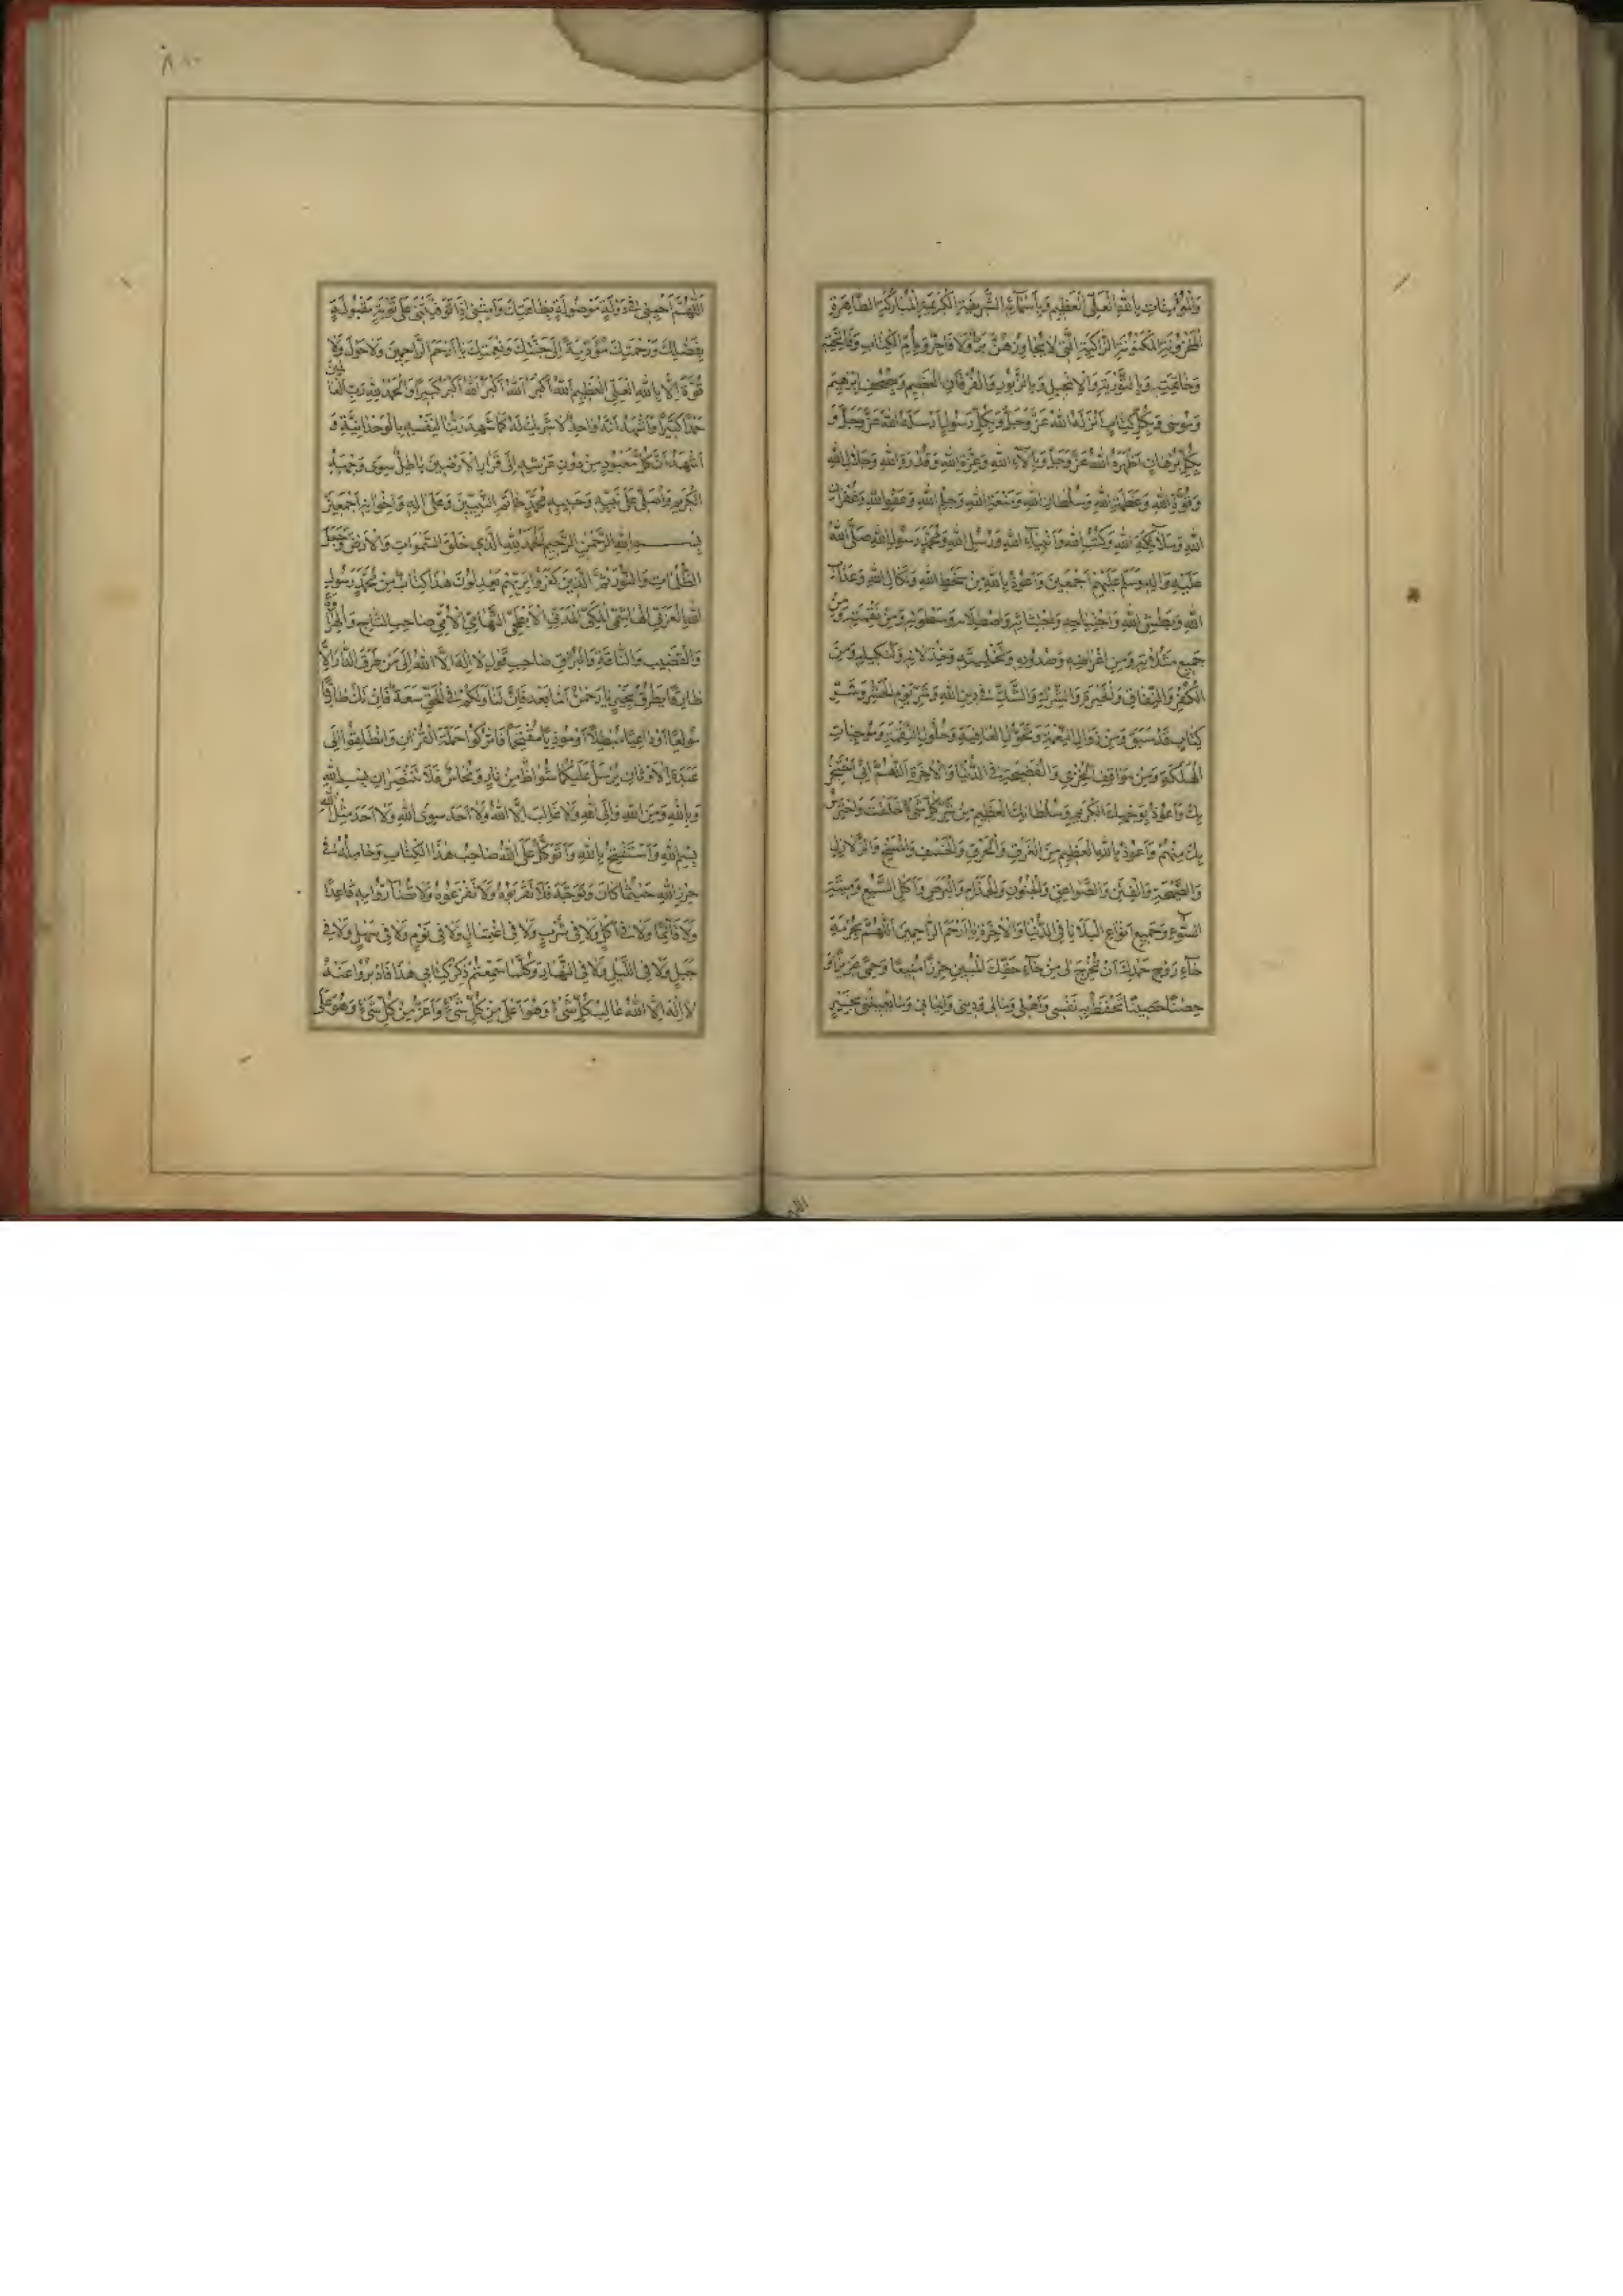 وَالْمُؤْمِنَاتِ بِاللّٰهِ الْعَلِيِّ الْعَظِيمِ وَبِاَسْمَآئِهِ الشَّرِيفَةِ الْكَرِيمَةِ الْمُبَارَكَةِ الطَّاهِرَةِ
الْمَخْزُونَةِ الْمَكْنُونَةِ الزَّاكِيَةِ الَّتِي لَا يُجَاوِزُهُنَّ بَرٌّ وَلَا فَاجِرٌ وَبِاُمِّ الْكِتَابِ وَفَاتِحَتِهِ
وَخَاتِمَتِهِ وَبِالتَّوْرٰيةِ وَالْاِنْجِيلِ وَبِالزَّبُورِ وَالْفُرْقَانِ الْعَظِيمِ وَبِصُحُفِ اِبْرٰهِيمَ
وَمُوسٰى وَبِكُلِّ كِتَابٍ اَنْزَلَهُ اللّٰهُ عَزَّ وَجَلَّ وَبِكُلِّ رَسُولٍ اَرْسَلَهُ اللّٰهُ عَزَّ وَجَلَّ وَ
بِكُلِّ بُرْهَانٍ اَظْهَرَهُ اللّٰهُ عَزَّ وَجَلَّ وَبِاٰلَآءِ اللّٰهِ وَعِزَّةِ اللّٰهِ وَقُدْرَةِ اللّٰهِ وَجَلَالِ اللّٰهِ
وَقُوَّةِ اللّٰهِ وَعَظَمَةِ اللّٰهِ وَسُلْطَانِ اللّٰهِ وَمَنَعَةِ اللّٰهِ وَحِلْمِ اللّٰهِ وَعَفْوِ اللّٰهِ وَغُفْرَانِ
اللّٰهِ وَمَلَآئِكَةِ اللّٰهِ وَكُتُبِ اللّٰهِ وَاَنْبِيَآءِ اللّٰهِ وَرُسُلِ اللّٰهِ وَمُحَمَّدٍ رَسُولِ اللّٰهِ صَلَّى اللّٰهُ
عَلَيْهِ وَاٰلِهِ وَسَلَّمَ عَلَيْهِمْ اَجْمَعِينَ وَاَعُوذُ بِاللّٰهِ مِنْ سَخَطِ اللّٰهِ وَنَكَالِ اللّٰهِ وَعَذَابِ
اللّٰهِ وَبَطْشِ اللّٰهِ وَاجْتِيَاحِهِ وَاجْتِثَاثِهِ وَاصْطِلَامِهِ وَسَطْوَتِهِ وَمِنْ نَقِمَتِهِ وَمِنْ
جَمِيعِ مَثُلَاتِهِ وَمِنْ اِعْرَاضِهِ وَصُدُودِهِ وَتَخْلِيَتِهِ وَخِذْلَانِهِ وَتَنْكِيلِهِ وَمِنَ
الْكُفْرِ وَالنِّفَاقِ وَالْحَيْرَةِ وَالشِّرْكِ وَالشَّكِّ فِي دِينِ اللّٰهِ وَشَرِّ يَوْمِ الْحَشْرِ وَشَرِّ
كِتَابٍ قَدْ سَبَقَ وَمِنْ زَوَالِ النِّعْمَةِ وَتَحَوُّلِ الْعَافِيَةِ وَحُلُولِ النِّقْمَةِ وَمُوجِبَاتِ
الْهَلَكَةِ وَمِنْ مَوَاقِفِ الْخِزْيِ وَالْفَضِيحَةِ فِي الدُّنْيَا وَالْاٰخِرَةِ اَللّٰهُمَّ اِنِّي اَسْتَجِيرُ
بِكَ وَاَعُوذُ بِوَجْهِكَ الْكَرِيمِ وَسُلْطَانِكَ الْعَظِيمِ مِنْ شَرِّ كُلِّ شَيْءٍ خَلَقْتَ وَاَحْتَرِسُ
بِكَ مِنْهُمْ وَاَعُوذُ بِاللّٰهِ الْعَظِيمِ مِنَ الْغَرَقِ وَالْحَرَقِ وَالْخَسْفِ وَالْمَسْخِ وَالزَّلَازِلِ
وَالصَّيْحَةِ وَالْفِتَنِ وَالصَّوَاعِقِ وَالْجُنُونِ وَالْجُذَامِ وَالْبَرَصِ وَاَكْلِ السَّبُعِ وَمِيتَةِ
السُّوءِ وَجَمِيعِ اَنْوَاعِ الْبَلَايَا فِي الدُّنْيَا وَالْاٰخِرَةِ يَا اَرْحَمَ الرَّاحِمِينَ اَللّٰهُمَّ بِحُرْمَةِ
حَآءِ رُوحِ حَمْدِكَ اَنْ تُخْرِجَ لِي مِنْ حَآءِ حَقِّكَ الْمُبِينِ حِرْزًا مَنِيعًا وَحِمًى عَزِيزًا وَ
حِصْنًا حَصِينًا تَحْفَظُ بِهِ نَفْسِي وَاَهْلِي وَمَالِي وَدِينِي وَاِيمَانِي وَمَا يُعِينُنِي بِخَيْرٍ
اَللّٰهُمَّ اَحْيِنِي فِي دَوْلَةٍ مَوْصُولَةٍ بِطَاعَتِكَ وَاَمِتْنِي اِذَا تَوَفَّيْتَنِي عَلٰى تَوْبَةٍ مَقْبُولَةٍ
بِفَضْلِكَ وَرَحْمَتِكَ مُؤَدِّيَةً اِلٰى جَنَّتِكَ وَنِعْمَتِكَ يَا اَرْحَمَ الرَّاحِمِينَ وَلَا حَوْلَ وَلَا
قُوَّةَ اِلَّا بِاللّٰهِ الْعَلِيِّ الْعَظِيمِ اَللّٰهُ اَكْبَرُ اَللّٰهُ اَكْبَرُ اَللّٰهُ اَكْبَرُ كَبِيرًا وَالْحَمْدُ لِلّٰهِ رَبِّ الْعَالَمِينَ
حَمْدًا كَثِيرًا وَاَشْهَدُ اَنَّهُ وَاحِدٌ لَا شَرِيكَ لَهُ كَمَا شَهِدَ رَبُّنَا لِنَفْسِهِ بِالْوَحْدَانِيَّةِ وَ
اَشْهَدُ اَنَّ كُلَّ مَعْبُودٍ مِنْ دُونِ عَرْشِهِ اِلٰى قَرَارِ الْاَرَضِينَ بَاطِلٌ سِوٰى وَجْهِهِ
الْكَرِيمِ وَاُصَلِّي عَلٰى نَبِيِّهِ وَحَبِيبِهِ مُحَمَّدٍ خَاتَمِ النَّبِيِّينَ وَعَلٰى اٰلِهِ وَاِخْوَانِهِ اَجْمَعِينَ
بِسْمِ اللّٰهِ الرَّحْمٰنِ الرَّحِيمِ اَلْحَمْدُ لِلّٰهِ الَّذِي خَلَقَ السَّمٰوَاتِ وَالْاَرْضَ وَجَعَلَ
الظُّلُمَاتِ وَالنُّورَ ثُمَّ الَّذِينَ كَفَرُوا بِرَبِّهِمْ يَعْدِلُونَ هٰذَا كِتَابٌ مِنْ مُحَمَّدٍ رَسُولِ
اللّٰهِ الْعَرَبِيِّ الْهَاشِمِيِّ الْمَكِّيِّ الْمَدَنِيِّ الْاَبْطَحِيِّ التِّهَامِيِّ الْاُمِّيِّ صَاحِبِ التَّاجِ وَالْهِرَاوَةِ
وَالْقَضِيبِ وَالنَّاقَةِ وَالْبُرَاقِ صَاحِبِ قَوْلِ لَا اِلٰهَ اِلَّا اللّٰهُ اِلٰى مَنْ طَرَقَ الدَّارَ اِلَّا
طَارِقًا يَطْرُقُ بِخَيْرٍ يَا رَحْمٰنُ اَمَّا بَعْدُ فَاِنَّ لَنَا وَلَكُمْ فِي الْحَقِّ سَعَةً فَاِنْ تَكُ طَارِقًا
مُولِعًا اَوْ دَاعِيًا مُبْطِلًا اَوْ مُوذِيًا مُقْتَحِمًا فَاتْرُكُوا حَمَلَةَ الْقُرْاٰنِ وَانْطَلِقُوا اِلٰى
عَبَدَةِ الْاَوْثَانِ يُرْسَلُ عَلَيْكُمَا شُوَاظٌ مِنْ نَارٍ وَنُحَاسٌ فَلَا تَنْتَصِرَانِ بِسْمِ اللّٰهِ
وَبِاللّٰهِ وَمِنَ اللّٰهِ وَاِلَى اللّٰهِ وَلَا غَالِبَ اِلَّا اللّٰهُ وَلَا اَحَدَ سِوَى اللّٰهِ وَلَا اَحَدَ مِثْلُ اللّٰهِ
بِسْمِ اللّٰهِ وَاَسْتَفْتِحُ بِاللّٰهِ وَاَتَوَكَّلُ عَلَى اللّٰهِ صَاحِبُ هٰذَا الْكِتَابِ وَحَامِلُهُ فِي
حِرْزِ اللّٰهِ حَيْثُمَا كَانَ وَتَوَجَّهَ فَلَا تَقْرَبُوهُ وَلَا تُفْزِعُوهُ وَلَا تُضَآرُّوا بِهِ قَاعِدًا
وَلَا قَآئِمًا وَلَا فِي اَكْلٍ وَلَا فِي شُرْبٍ وَلَا فِي اغْتِسَالٍ وَلَا فِي نَوْمٍ وَلَا فِي سَهْلٍ وَلَا فِي
جَبَلٍ وَلَا فِي اللَّيْلِ وَلَا فِي النَّهَارِ وَكُلَّمَا سَمِعْتُمْ ذِكْرَ كِتَابِي هٰذَا فَادْبِرُوا عَنْهُ
لَا اِلٰهَ اِلَّا اللّٰهُ غَالِبُ كُلِّ شَيْءٍ وَهُوَ اَعْلٰى مِنْ كُلِّ شَيْءٍ وَاَعَزُّ مِنْ كُلِّ شَيْءٍ وَهُوَ عَلٰى